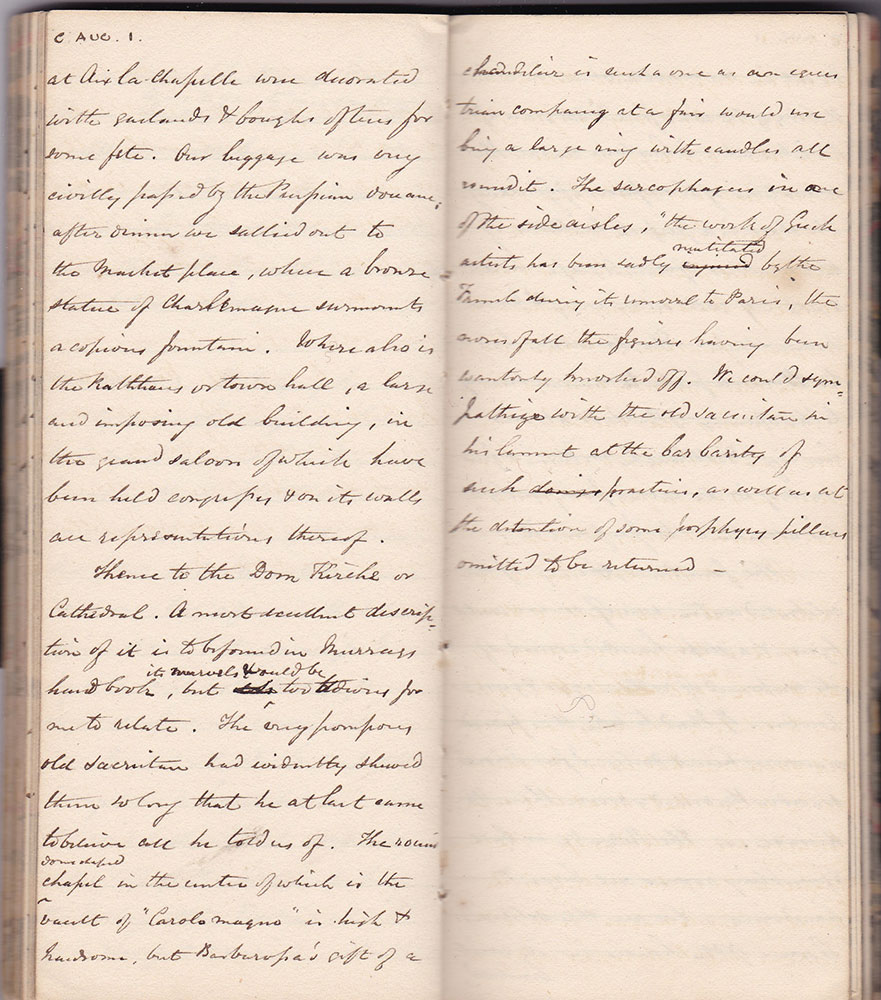 C AUG. 1.
at Aix la-Chapelle were decorated
with garlands & boughs of trees for
some fête. Our luggage was very
civilly passed by the Prussian douane,
after dinner we sallied out to
the Market place, where a bronze
statue of Charlemagne surmounts
a copious fountain. Where also is
the Rathhaus or town hall, a large
and imposing old building, in
the grand saloon of which have
been held congresses & on its walls
are representations thereof.
Thence to the Dom Kirche or
Cathedral. A most excellent descrip=
tion of it is to be found in Murrays
its marvels would be
hand book, but too tedious for
me to relate. The very pompous
old sacristan had evidently shewed
them so long that he at last came
to believe all he told us of. The round
dome shaped
chapel in the centre of which is the
vault of "Carolo magno" is high &
handsome, but Barbarossa's gift of a
chandelier is such a one as an eques
trian company at a fair would use
being a large ring with candles all
round it. The sarcophagus in one
of the side aisles, "the work of Greek
mutilated
artists has been sadly injured by the
French during its removal to Paris, the
noses of all the figures having been
wantonly knocked off. We could sym=
pathize with the old sacristan in
his lament at the barbarity of
such doings practices, as well as at
the detention of some porphyry pillars
omitted to be returned —